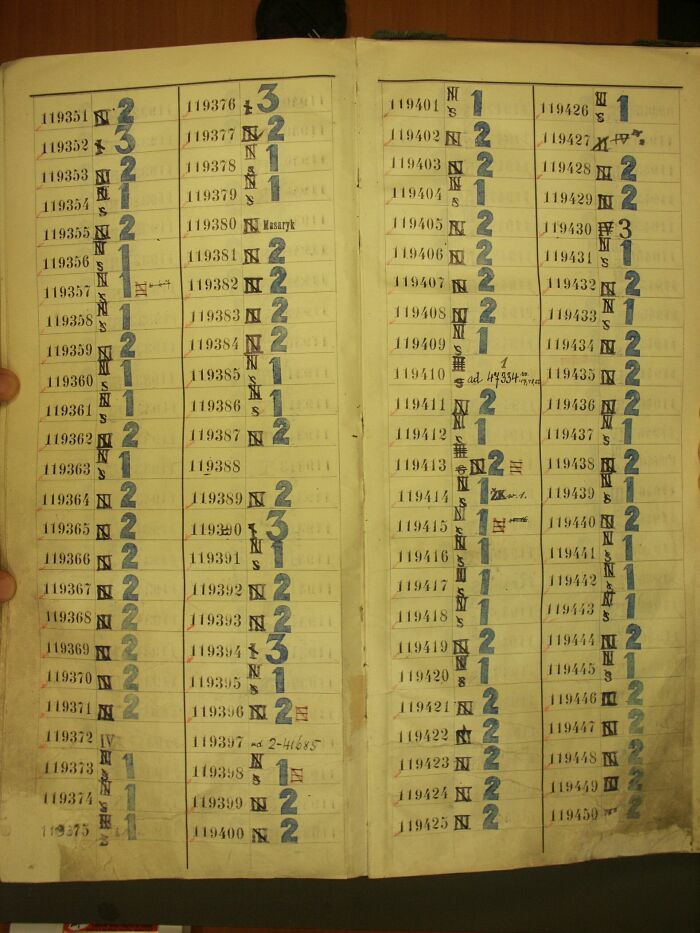 119351 N 2
119352 s 3
119353 N 2
119354 N s 1
119355 N 2
119356 N s 1
119357 N s 1 III
119358 N s 1
119359 N 2
119360 N s 1
119361 N s 1
119362 N 2
119363 N s 1
119364 N 2
119365 N 2
119366 N 2
119367 N 2
119368 N 2
119369 N 2
119370 N 2
119371 N 2
119372 IV
119373 N s 1
119374 N s 1
119375 s 1
119376 s 3
119377 N 2
119378 N s 1
119379 N s 1
119380 N Masaryk
119381 N 2
119382 N 2
119383 N 2
119384 N 2
119385 N s 1
119386 N s 1
119387 N 2
119388
119389 N 2
119390 s 3
119391 N s 1
119392 N 2
119393 N 2
119394 s 3
119395 N s 1
119396 N 2 III
119397 ad 2-41685
119398 N s 1 III
119399 N 2
119400 N 2
119401 N s 1
119402 N 2
119403 N 2
119404 N s 1
119405 N 2
119406 N 2
119407 N 2
119408 N 2
119409 N s 1
119410 III s ad 47334 1
119411 N 2
119412 N s 1
119413 N 2 III
119414 N s 1 ŽK
119415 N s 1 III
119416 N s 1
119417 N s 1
119418 N s 1
119419 N 2
119420 N s 1
119421 N 2
119422 N 2
119423 N 2
119424 N 2
119425 N 2
119426 N s 1
119427 IV
119428 N 2
119429 N 2
119430 IV 3
119431 N s 1
119432 N 2
119433 N s 1
119434 N 2
119435 N 2
119436 N 2
119437 N s 1
119438 N 2
119439 N s 1
119440 N 2
119441 N s 1
119442 N s 1
119443 N s 1
119444 N 2
119445 N s 1
119446 N 2
119447 N 2
119448 N 2
119449 N 2
119450 2